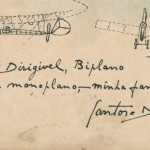 Dirigivel, Biplano
monoplano – minha
Santos